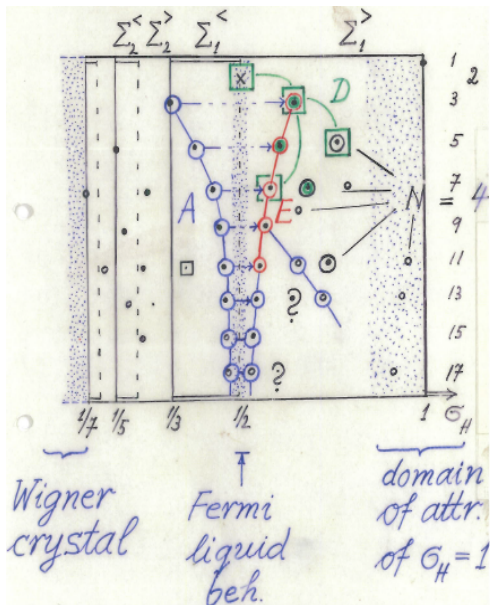 Σ₂^< Σ₂^> Σ₁^< Σ₁^>
1
2
3
5
7
9
11
13
15
17
x
D
A
E
N = 4
?
?
1/7 1/5 1/3 1/2 1 σ_H
Wigner
crystal
Fermi
liquid
beh.
domain
of attr.
of σ_H = 1